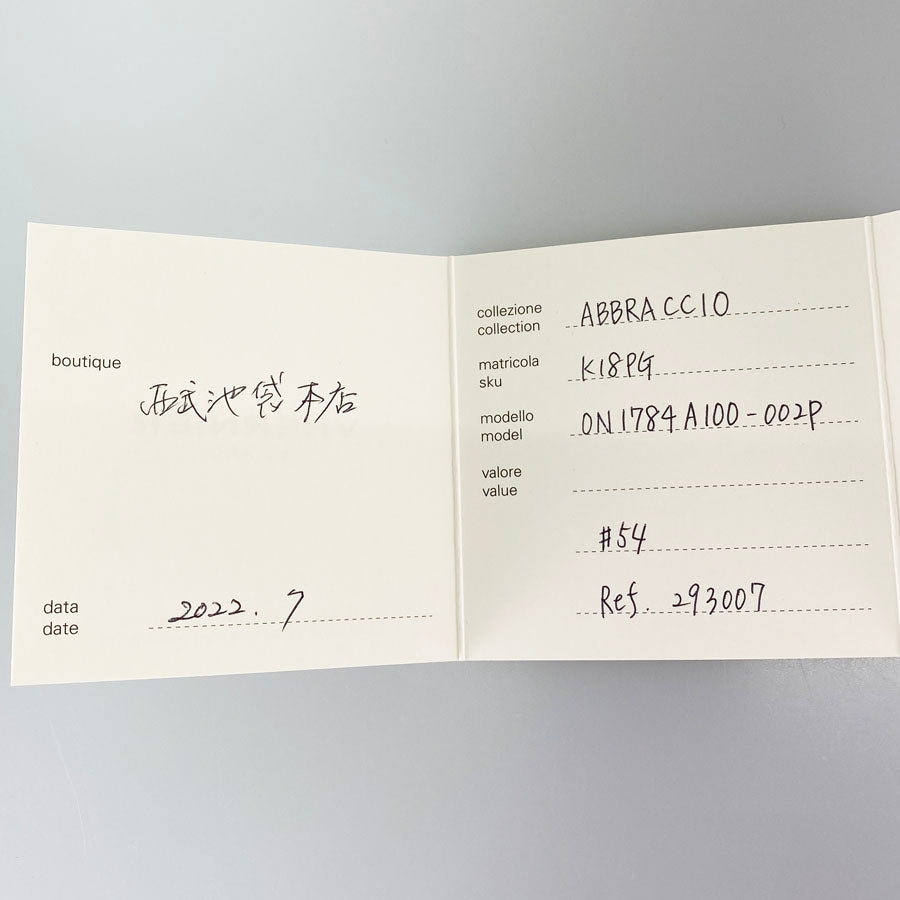 boutique
西武池袋本店
data
date
2022.7
collezione
collection
ABBRACCIO
matricola
sku
K18PG
modello
model
ON1784A100-002P
valore
value
#54
Ref. 293007